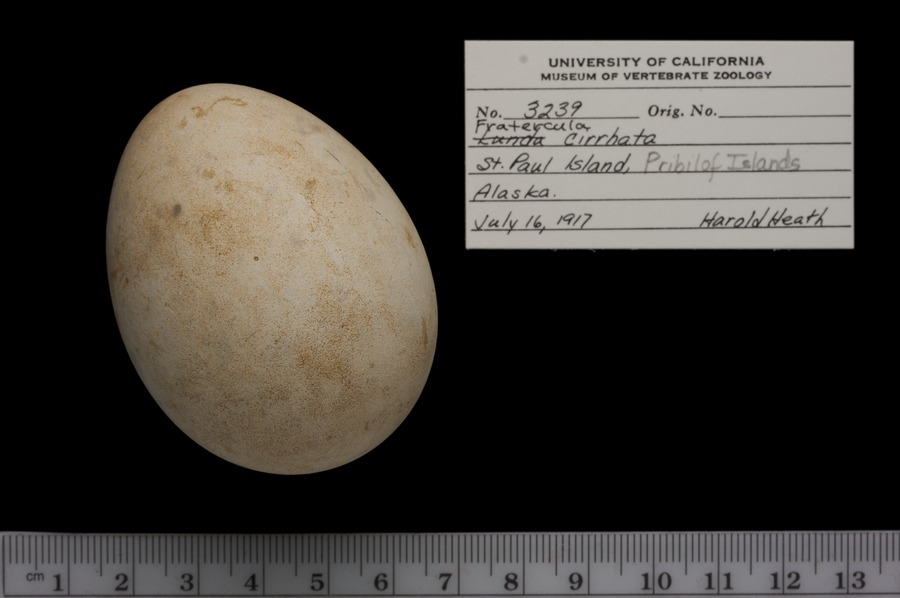 UNIVERSITY OF CALIFORNIA
MUSEUM OF VERTEBRATE ZOOLOGY
No. 3239 Orig. No.
Fratercula
Lunda cirrhata
St. Paul Island, Pribilof Islands
Alaska.
July 16, 1917 Harold Heath
cm 1 2 3 4 5 6 7 8 9 10 11 12 13